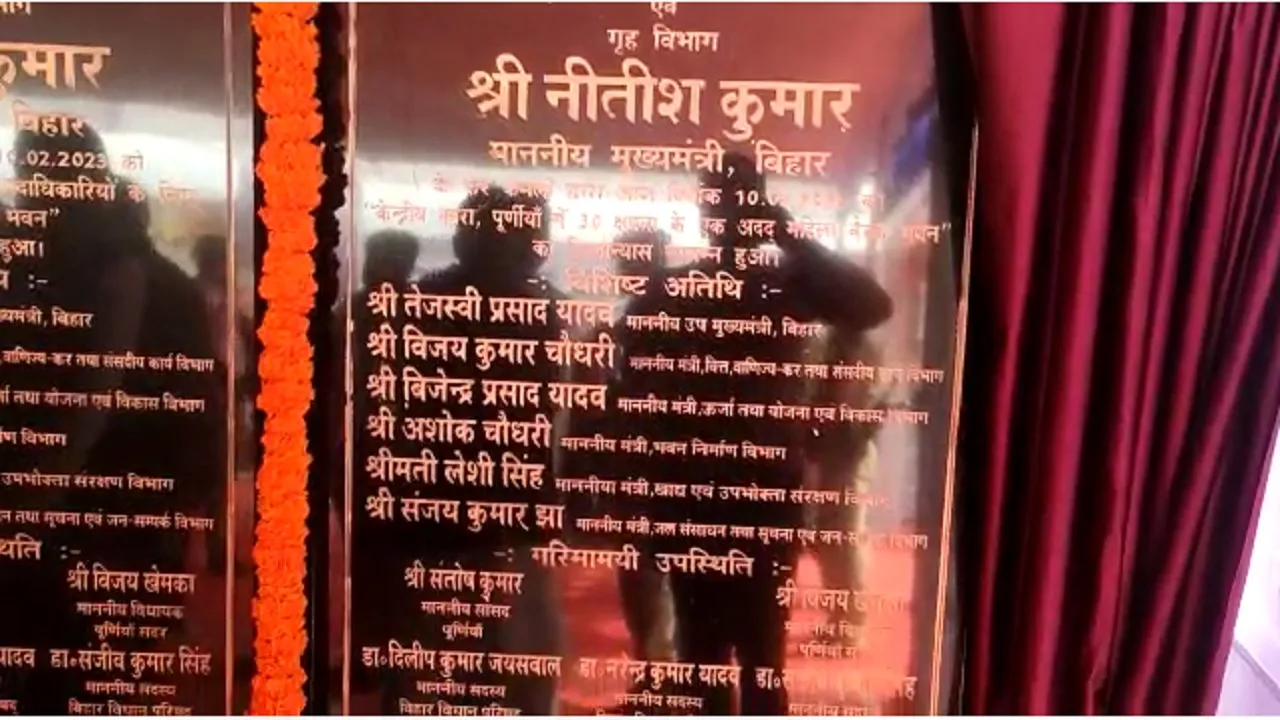 भाग
कुमार
बिहार
10.02.2023 को
पदाधिकारियों के लिए
भवन”
हुआ।
:-
मुख्यमंत्री, बिहार
वाणिज्य-कर तथा संसदीय कार्य विभाग
तथा योजना एवं विकास विभाग
विभाग
उपभोक्ता संरक्षण विभाग
तथा सूचना एवं जन-सम्पर्क विभाग
:-
श्री विजय खेमका
माननीय विधायक
पूर्णियाँ सदर
यादव डा०संजीव कुमार सिंह
माननीय सदस्य
बिहार विधान परिषद
एवं
गृह विभाग
श्री नीतीश कुमार
माननीय मुख्यमंत्री, बिहार
के कर कमलों द्वारा आज दिनांक 10.02.2023 को
“केन्द्रीय कारा, पूर्णियाँ में 30 क्षमता के एक अदद महिला बैरक भवन”
का शिलान्यास सम्पन्न हुआ।
-: विशिष्ट अतिथि :-
श्री तेजस्वी प्रसाद यादव माननीय उप मुख्यमंत्री, बिहार
श्री विजय कुमार चौधरी माननीय मंत्री,वित्त,वाणिज्य-कर तथा संसदीय कार्य विभाग
श्री बिजेन्द्र प्रसाद यादव माननीय मंत्री,ऊर्जा तथा योजना एवं विकास विभाग
श्री अशोक चौधरी माननीय मंत्री,भवन निर्माण विभाग
श्रीमती लेशी सिंह माननीया मंत्री,खाद्य एवं उपभोक्ता संरक्षण विभाग
श्री संजय कुमार झा माननीय मंत्री,जल संसाधन तथा सूचना एवं जन-सम्पर्क विभाग
-: गरिमामयी उपस्थिति :-
श्री संतोष कुमार
माननीय सांसद
पूर्णियाँ
श्री विजय खेमका
माननीय
पूर्णियाँ
डा०दिलीप कुमार जयसवाल डा०नरेन्द्र कुमार यादव डा० सिंह
माननीय सदस्य माननीय सदस्य
बिहार विधान परिषद